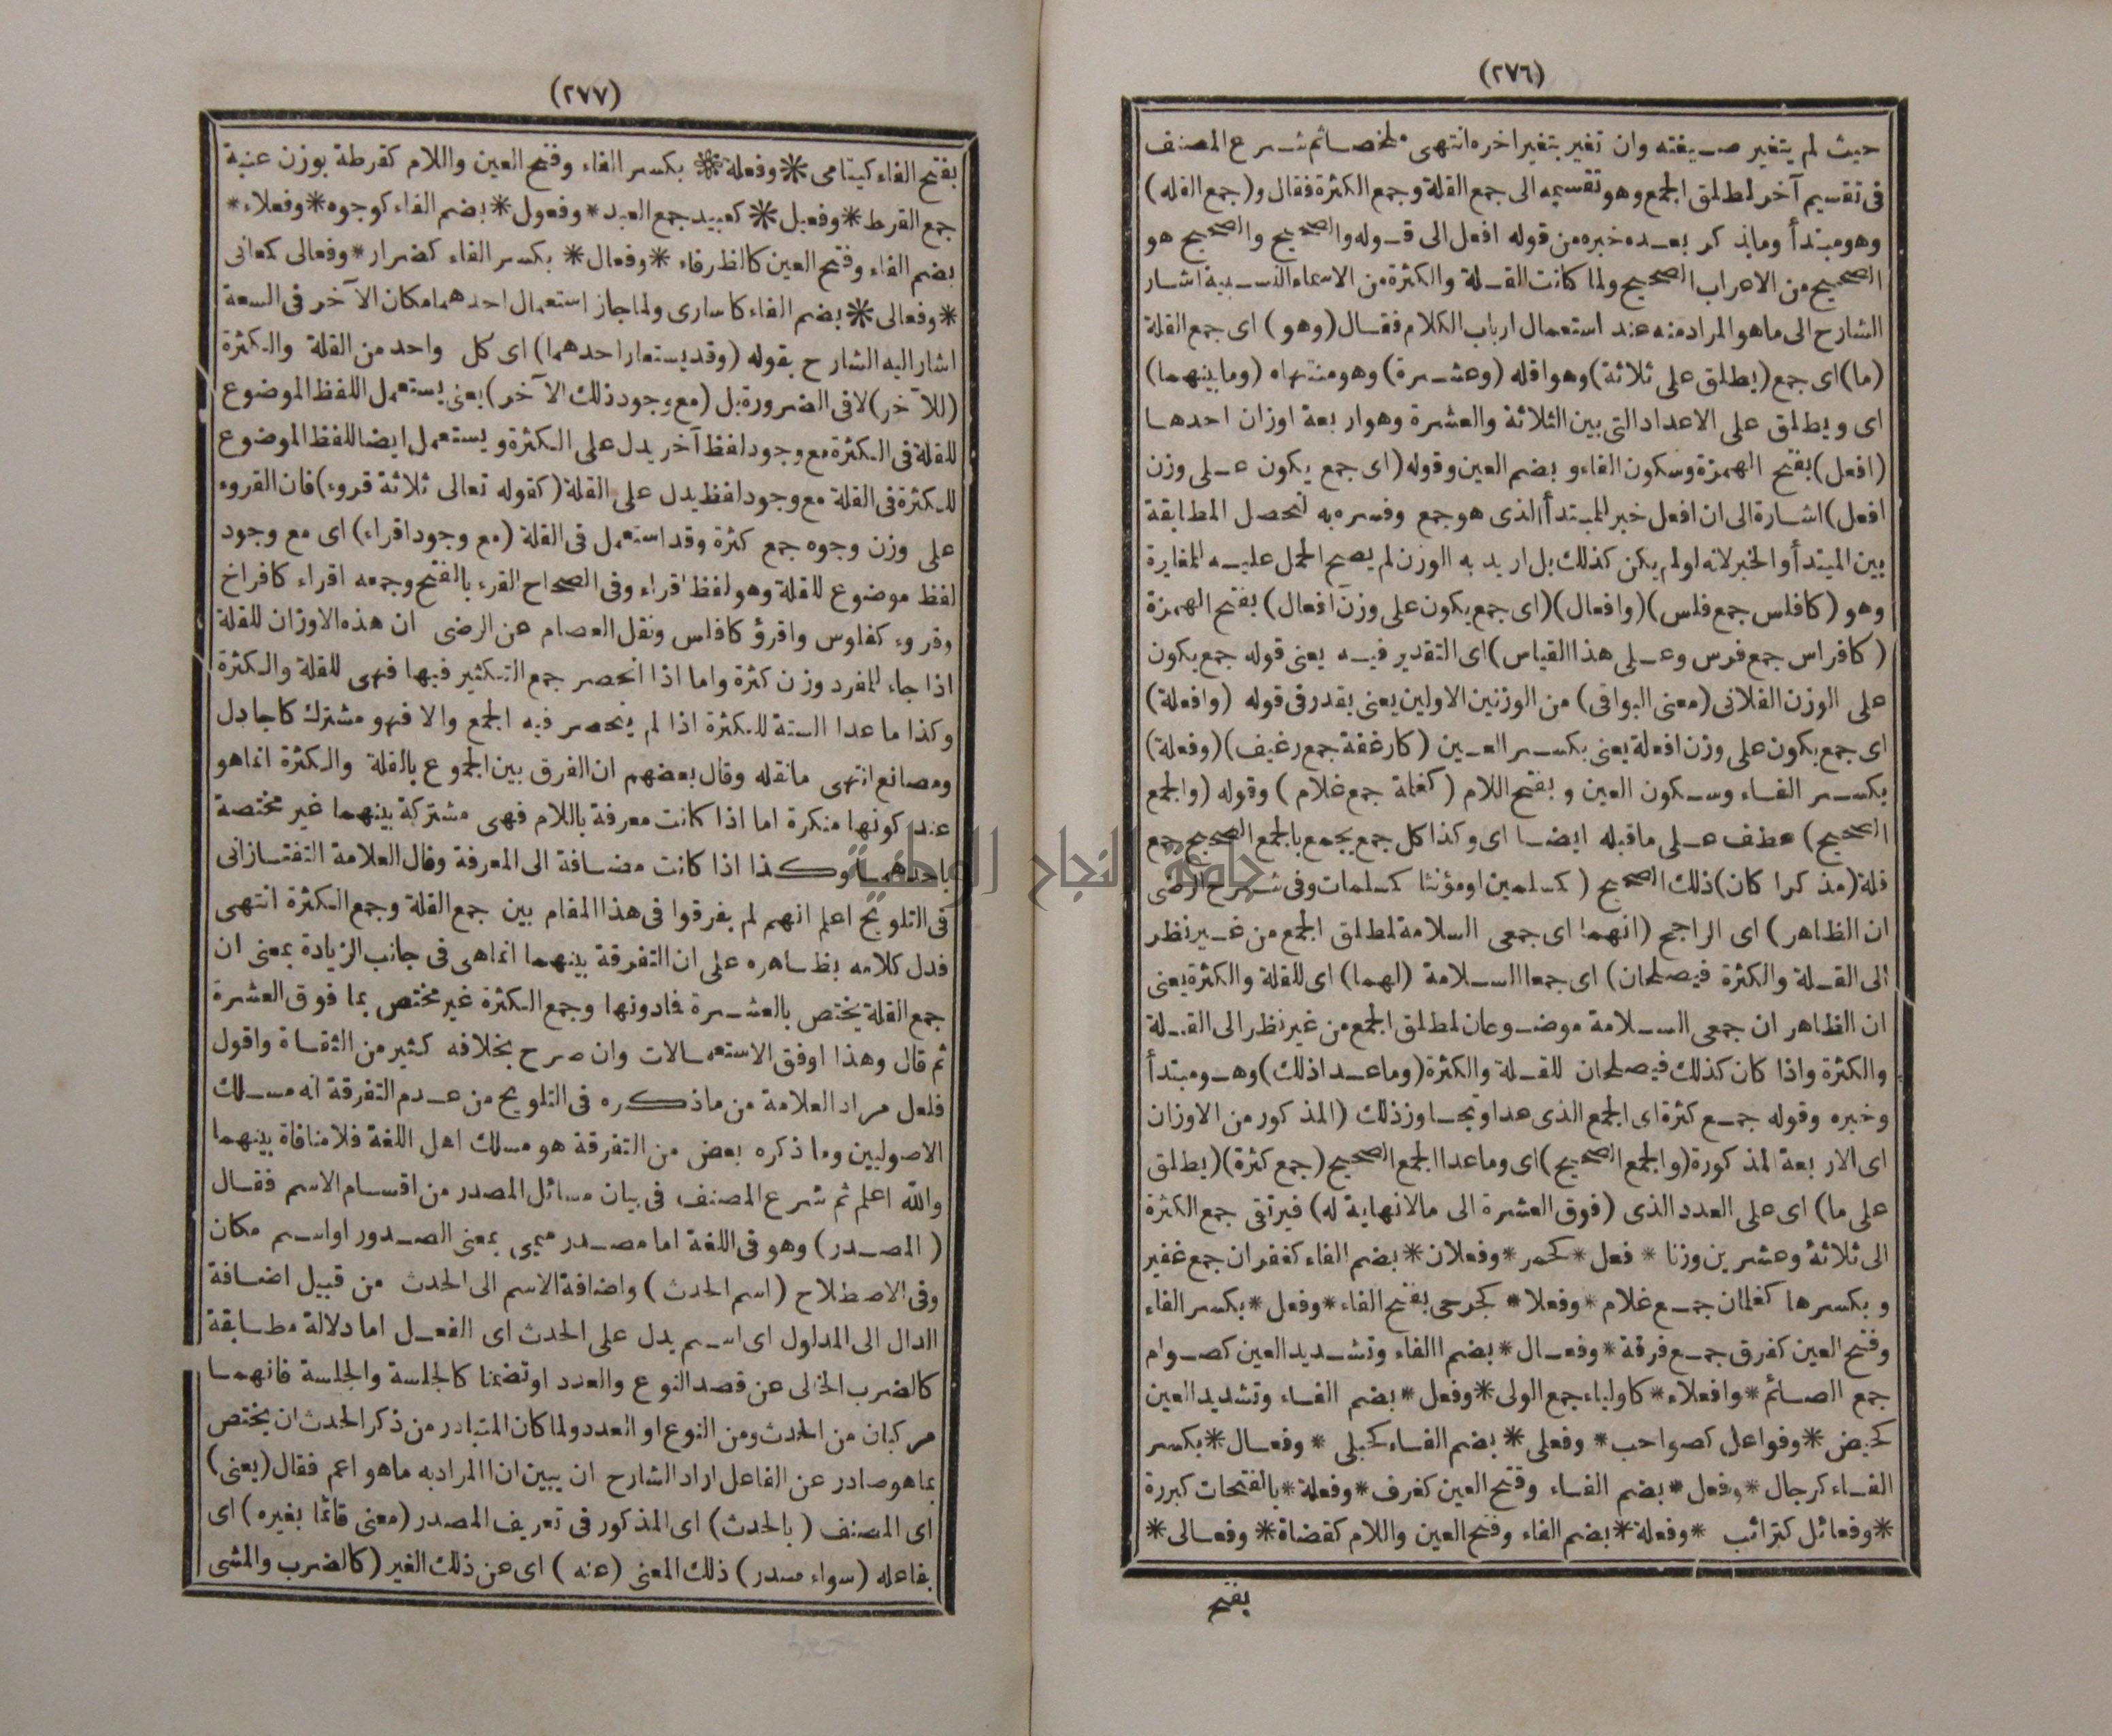 (٢٧٦)
حيث لم يتغير صيغته وان تغير بتغير اخره انتهى ملخصا ثم شرع المصنف
فى تقسيم آخر لمطلق الجمع وهو تقسيمه الى جمع القلة وجمع الكثرة فقال و(جمع القله)
وهو مبتدأ وما يذكر بعده خبره من قوله افعل الى قوله والصحيح والصحيح هو
الصحيح من الاعراب الصحيح ولما كانت القلة والكثرة من الاسماء النسبية اشار
الشارح الى ما هو المراد منه عند استعمال ارباب الكلام فقال (وهو) اى جمع القلة
(ما) اى جمع (يطلق على ثلاثة) وهو اقله (وعشرة) وهو منتهاه (وما بينهما)
اى ويطلق على الاعداد التى بين الثلاثة والعشرة وهو اربعة اوزان احدها
(افعل) بفتح الهمزة وسكون الفاء و بضم العين وقوله (اى جمع يكون على وزن
افعل) اشارة الى ان افعل خبر للمبتدأ الذى هو جمع وفسره به لتحصل المطابقة
بين المبتدأ والخبر لانه لو لم يكن كذلك بل اريد به الوزن لم يصح الحمل عليه للمغايرة
وهو (كافلس جمع فلس) (وافعال) (اى جمع يكون على وزن افعال) بفتح الهمزة
(كافراس جمع فرس وعلى هذا القياس) اى التقدير فيه يعنى قوله جمع يكون
على الوزن الفلانى (معنى البواقى) من الوزنين الاولين يعنى يقدر فى قوله (وافعلة)
اى جمع يكون على وزن افعلة يعنى بكسر العين (كارغفة جمع رغيف) (وفعلة)
بكسر الفاء وسكون العين و بفتح اللام (كغلمة جمع غلام) وقوله (والجمع
الصحيح) عطف على ما قبله ايضا اى وكذا كل جمع يجمع بالجمع الصحيح جمع
قلة (مذكرا كان) ذلك الصحيح (كمسلمين او مؤنثا كمسلمات وفى شرح الرضى
ان الظاهر) اى الراجح (انهما اى جمعى السلامة لمطلق الجمع من غير نظر
الى القلة والكثرة فيصلحان) اى جمعا السلامة (لهما) اى للقلة والكثرة يعنى
ان الظاهر ان جمعى السلامة موضوعان لمطلق الجمع من غير نظر الى القلة
والكثرة واذا كان كذلك فيصلحان للقلة والكثرة (وما عدا ذلك) وهو مبتدأ
وخبره وقوله جمع كثرة اى الجمع الذى عدا وتجاوز ذلك (المذكور من الاوزان
اى الاربعة المذكورة (والجمع الصحيح) اى وما عدا الجمع الصحيح (جمع كثرة) (يطلق
على ما) اى على العدد الذى (فوق العشرة الى ما لا نهاية له) فيرتقى جمع الكثرة
الى ثلاثة وعشرين وزنا * فعل * كحمر * وفعلان * بضم الفاء كغفران جمع غفير
و بكسرها كغلمان جمع غلام * وفعلا * كجرحى بفتح الفاء * وفعل * بكسر الفاء
وفتح العين كفرق جمع فرقة * وفعال * بضم الفاء وتشديد العين كصوام
جمع الصائم * وافعلاء * كاولياء جمع الولى * وفعل * بضم الفاء وتشديد العين
كحيض * وفواعل كصواحب * وفعلى * بضم الفاء كحبلى * وفعال * بكسر
الفاء كرجال * وفعل * بضم الفاء وفتح العين كغرف * وفعلة * بالفتحات كبررة
* وفعائل كترائب * وفعلة * بضم الفاء وفتح العين واللام كقضاة * وفعالى *
بفتح
(٢٧٧)
بفتح الفاء كيتامى * وفعلة * بكسر الفاء وفتح العين واللام كقرطة بوزن عنبة
جمع القرط * وفعيل * كعبيد جمع العبد * وفعول * بضم الفاء كوجوه * وفعلاء *
بضم الفاء وفتح العين كالظرفاء * وفعال * بكسر الفاء كضرار * وفعالى كمعانى
* وفعالى * بضم الفاء كاسارى ولما جاز استعمال احدهما مكان الآخر فى السعة
اشار اليه الشارح بقوله (وقد يستعار احدهما) اى كل واحد من القلة والكثرة
(للآخر) لا فى الضرورة بل (مع وجود ذلك الآخر) يعنى يستعمل اللفظ الموضوع
للقلة فى الكثرة مع وجود لفظ آخر يدل على الكثرة و يستعمل ايضا اللفظ الموضوع
للكثرة فى القلة مع وجود لفظ يدل على القلة (كقوله تعالى ثلاثة قروء) فان القروء
على وزن وجوه جمع كثرة وقد استعمل فى القلة (مع وجود اقراء) اى مع وجود
لفظ موضوع للقلة وهو لفظ اقراء وفى الصحاح القرء بالفتح وجمعه اقراء كافراخ
وقروء كفلوس واقرؤ كافلس ونقل العصام عن الرضى ان هذه الاوزان للقلة
اذا جاء للمفرد وزن كثرة واما اذا انحصر جمع التكثير فيها فهى للقلة والكثرة
وكذا ما عدا الستة للكثرة اذا لم ينحصر فيه الجمع والا فهو مشترك كاجادل
ومصانع انتهى ما نقله وقال بعضهم ان الفرق بين الجموع بالقلة والكثرة انما هو
عند كونها منكرة اما اذا كانت معرفة باللام فهى مشتركة بينهما غير مختصة
باحدهما وكذا اذا كانت مضافة الى المعرفة وقال العلامة التفتازانى
فى التلويح اعلم انهم لم يفرقوا فى هذا المقام بين جمع القلة وجمع الكثرة انتهى
فدل كلامه بظاهره على ان التفرقة بينهما انما هى فى جانب الزيادة بمعنى ان
جمع القلة يختص بالعشرة فادونها وجمع الكثرة غير مختص بما فوق العشرة
ثم قال وهذا اوفق الاستعمالات وان صرح بخلافه كثير من الثقاة واقول
فلعل مراد العلامة من ما ذكره فى التلويح من عدم التفرقة انه مسلك
الاصوليين وما ذكره بعض من التفرقة هو مسلك اهل اللغة فلا منافاة بينهما
والله اعلم ثم شرع المصنف فى بيان مسائل المصدر من اقسام الاسم فقال
(المصدر) وهو فى اللغة اما مصدر ميمى بمعنى الصدور او اسم مكان
وفى الاصطلاح (اسم الحدث) واضافة الاسم الى الحدث من قبيل اضافة
الدال الى المدلول اى اسم يدل على الحدث اى الفعل اما دلالة مطابقة
كالضرب الخالى عن قصد النوع والعدد او تضمنا كالجلسة والجلسة فانهما
مركبان من الحدث ومن النوع او العدد ولما كان المتبادر من ذكر الحدث ان يختص
بما هو صادر عن الفاعل اراد الشارح ان يبين ان المراد به ما هو اعم فقال (يعنى)
اى المصنف (بالحدث) اى المذكور فى تعريف المصدر (معنى قائما بغيره) اى
بفاعله (سواء صدر) ذلك المعنى (عنه) اى عن ذلك الغير (كالضرب والمشى
جامعة النجاح الوطنية